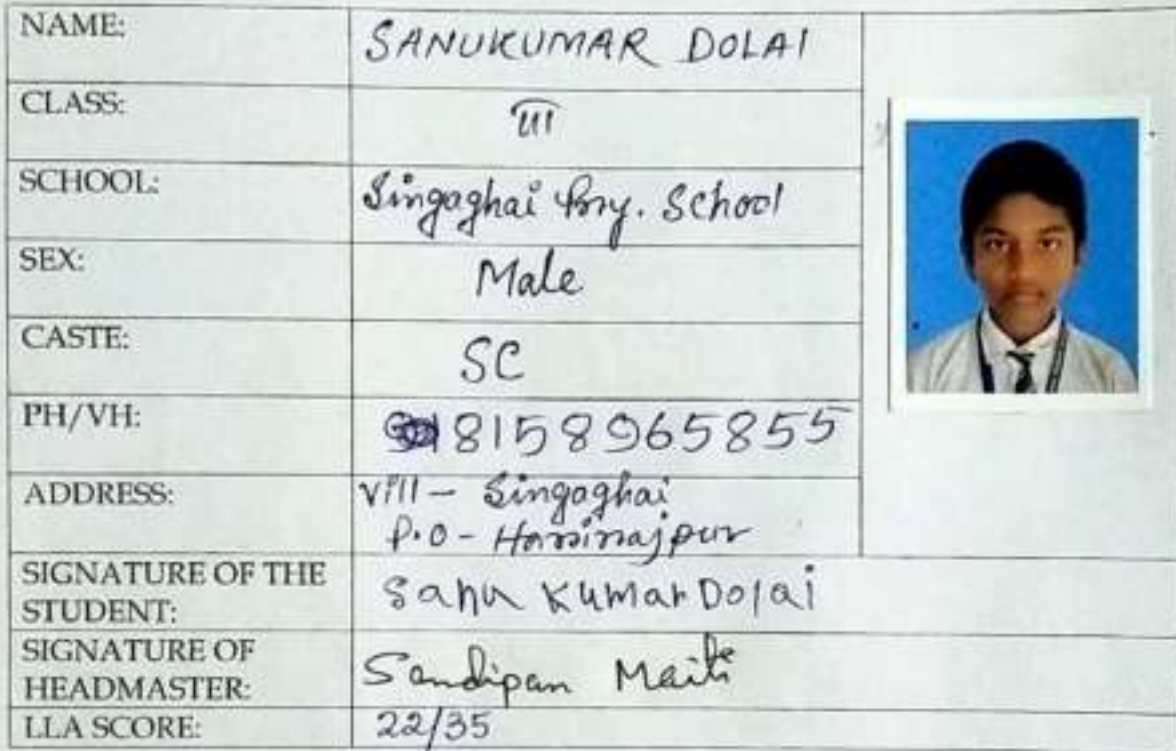 NAME: SANUKUMAR DOLAI
CLASS: III
SCHOOL: Singaghai Pry. School
SEX: Male
CASTE: SC
PH/VH: 8158965855
ADDRESS: Vill - Singaghai
P.O - Harirajpur
SIGNATURE OF THE
STUDENT: Sanu Kumar Dolai
SIGNATURE OF
HEADMASTER: Sandipan Maiti
LLA SCORE: 22/35